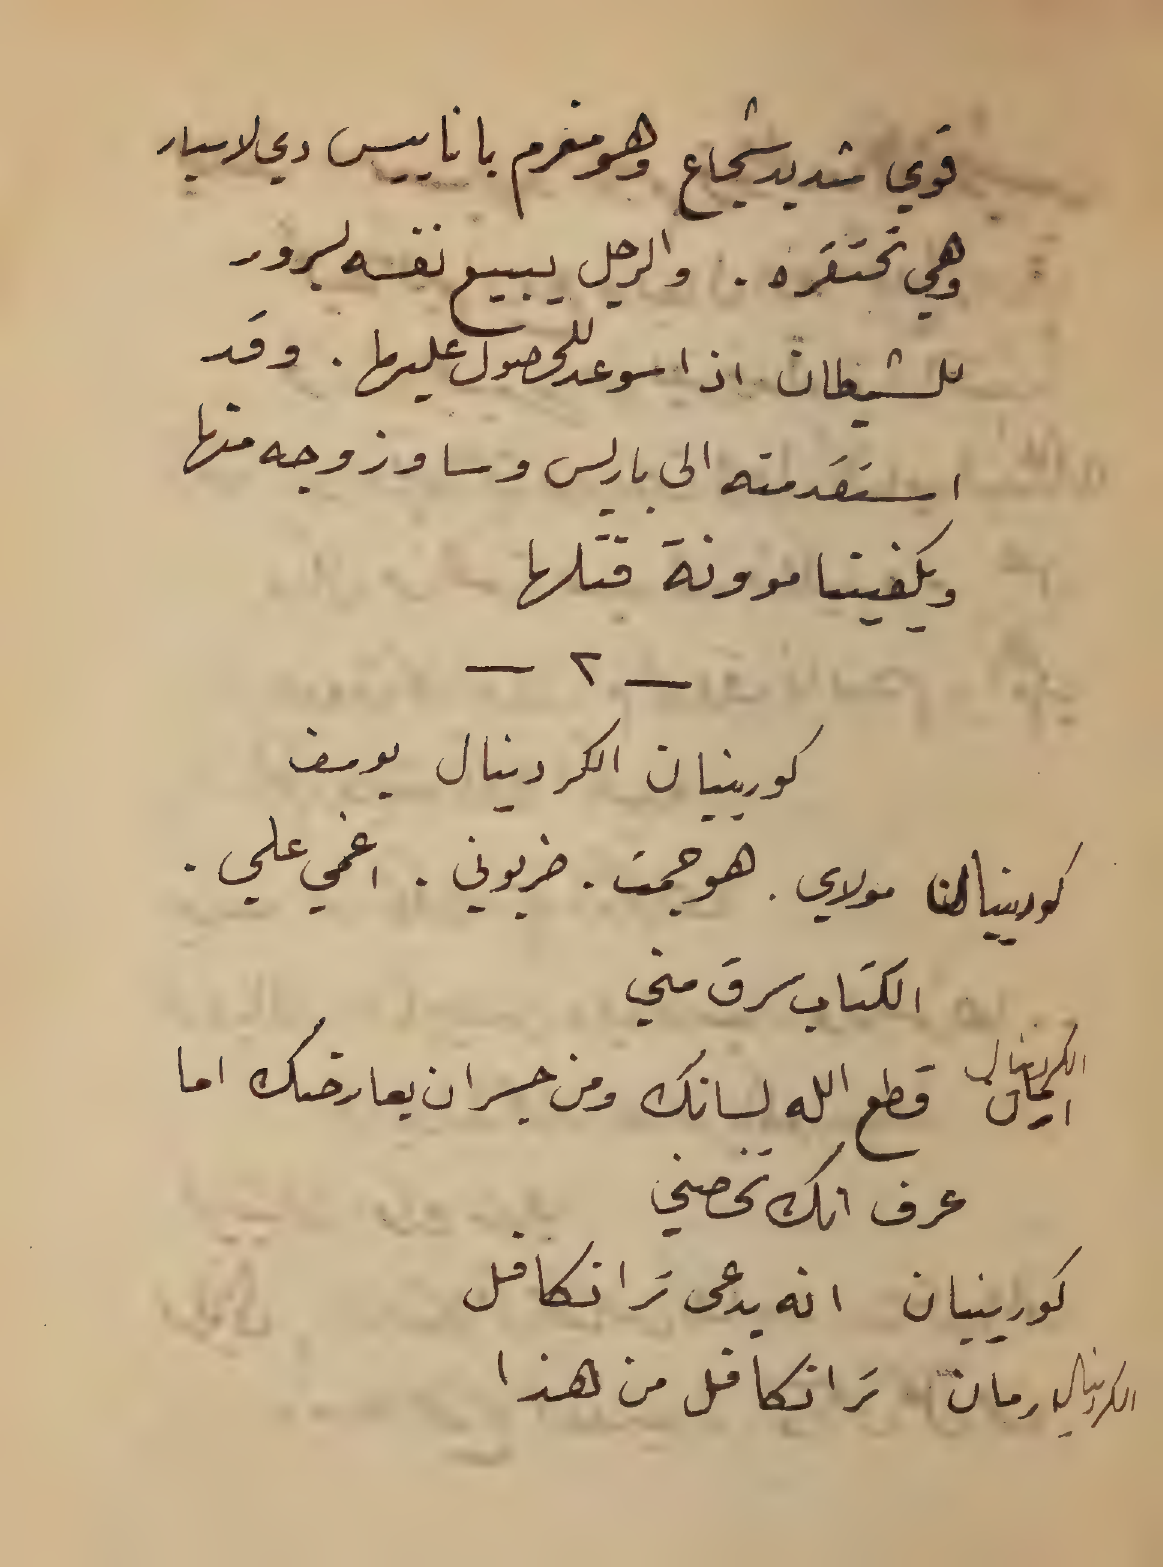 قوي شديد شجاع وهو مغرم بانابيس دي لاسيار
وهي تحتقره . والرجل يبيع نفسه لسرور
للشيطان اذا سوعد للحصول عليها . وقد
استقدمته الى باريس وسازوجه منها
ويكفينا موونة قتلها
— ٢ —
كورينيان الكردينال يوسف
كورينيان مولاي . هوجمت . ضربوني . اغمي علي .
الكتاب سرق مني
الكردينال قطع الله لسانك ومن جسر ان يعارضك اما
عرف انك تخصني
كورينيان انه يدعى ترانكافل
الكردينال رمان ترانكافل من هذا